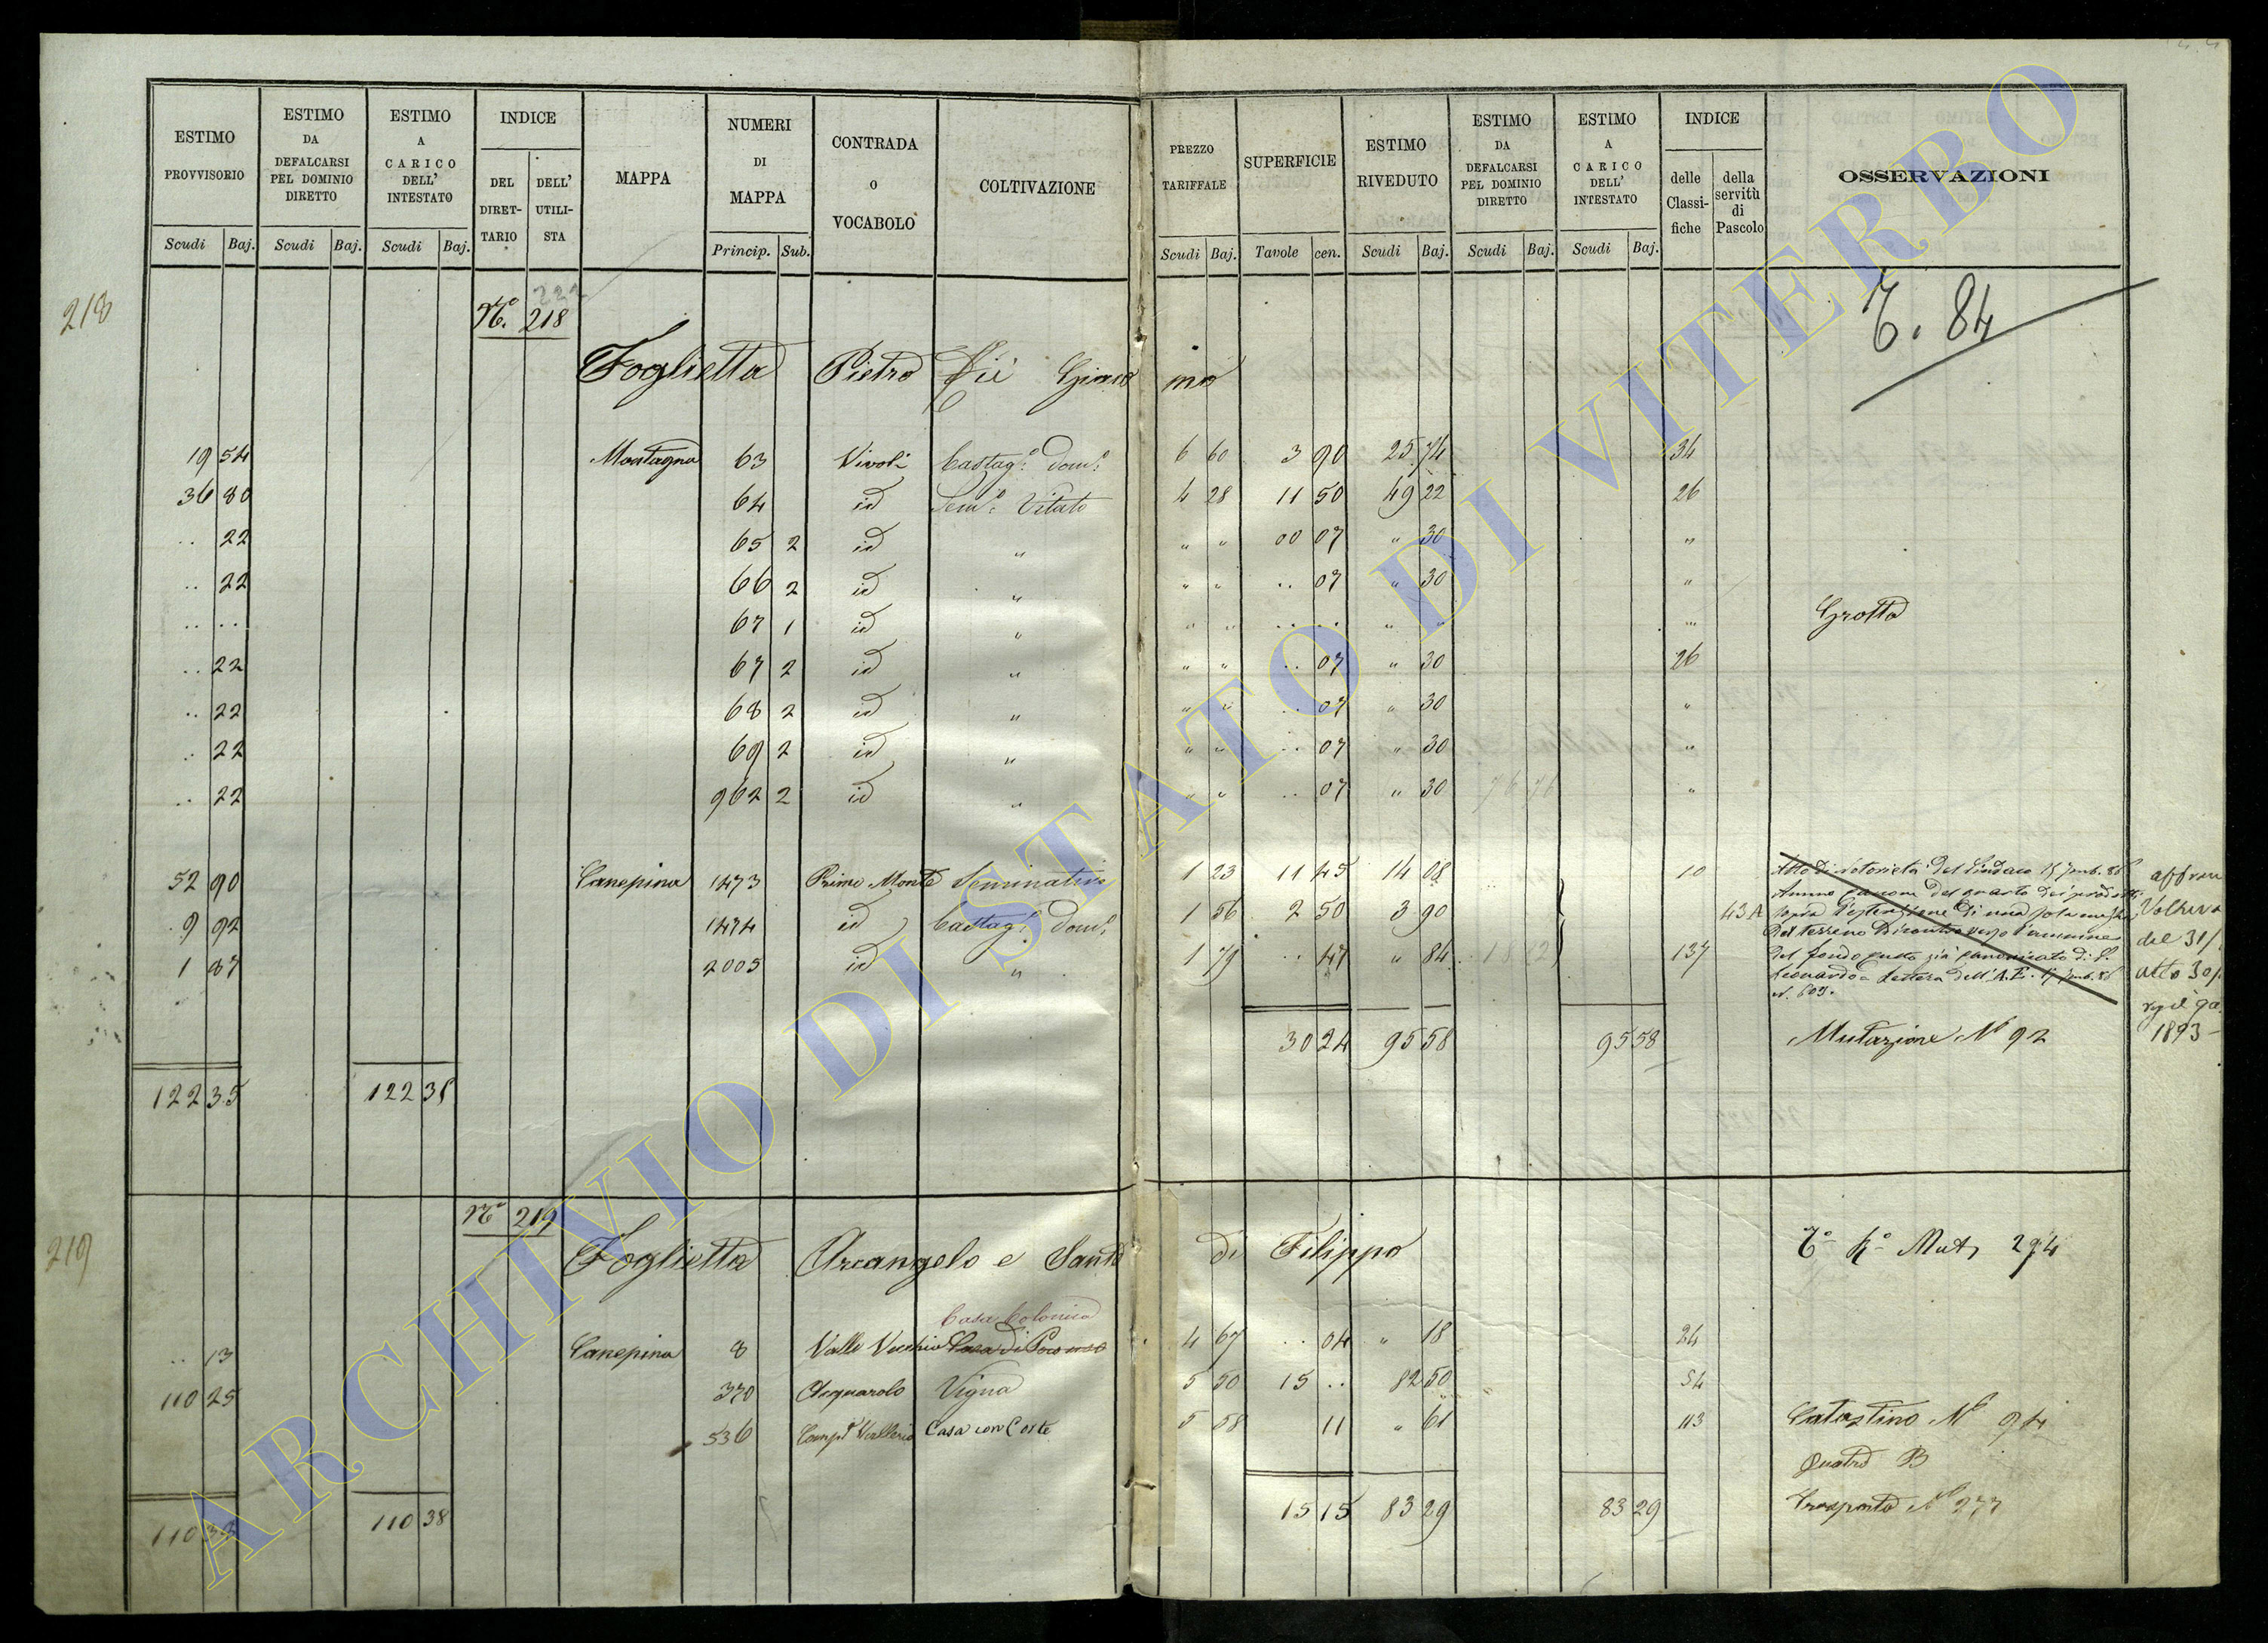 ESTIMO PROVVISORIO
ESTIMO DA DEFALCARSI PEL DOMINIO DIRETTO
ESTIMO A CARICO DELL' INTESTATO
INDICE
DEL DIRET-TARIO
DELL' UTILI-STA
MAPPA
NUMERI DI MAPPA
CONTRADA O VOCABOLO
COLTIVAZIONE
PREZZO TARIFFALE
SUPERFICIE
ESTIMO RIVEDUTO
ESTIMO DA DEFALCARSI PEL DOMINIO DIRETTO
ESTIMO A CARICO DELL' INTESTATO
INDICE
delle Classi-fiche
della servitù di Pascolo
OSSERVAZIONI
Scudi Baj. Scudi Baj. Scudi Baj. Princip. Sub. Scudi Baj. Tavole cen. Scudi Baj. Scudi Baj. Scudi Baj.
222
218 N.º 218
84
Foglietta Pietro
19 54 Montagna 63 Vivoli Castag.º Dom.º 6 60 3 90 25 74 34
36 80 64 id Sem.º Vitato 4 28 11 50 49 22 26
.. 22 65 2 id " " " 00 07 " 30 "
.. 22 66 2 id " " " .. 07 " 30 "
.. .. 67 1 id " " " .. .. " " " Grotta
.. 22 67 2 id " " " .. 07 " 30 26
.. 22 68 2 id " " " .. 07 " 30 "
.. 22 69 2 id " " " .. 07 " 30 "
.. 22 962 2 id " " " .. 07 " 30 76 76 "
52 90 Canepina 1473 Primo Monte Seminativo 1 23 11 45 14 08 10
9 92 1474 id Castag.º Dom.º 1 56 2 50 3 90 43 A
1 87 2005 id " 1 79 .. 47 " 84 137
Atto di Notorietà del Sindaco
Annuo canone del quarto dei prodotti
sopra l'estenzione di una sola
del terreno
del fondo
Leonardo Lettera dell' A.F.
del 31/
atto 30/
1893
30 24 95 58 95 58 Mutazione Nº 92
122 35 122 35
219 Nº 219
Foglietta Arcangelo e Santo di Filippo
Mut. 294
Casa Colonica
.. 13 Canepina 8 Valle Vecchia Casa di Proprio uso 4 67 .. 04 " 18 24
110 25 370 Acquarolo Vigna 5 50 15 .. 82 50 54
536 Casa con Corte 5 58 11 " 61 113 Catastino Nº 94
Quadro B
15 15 83 29 83 29 Trasporto Nº 277
110 38 110 38
ARCHIVIO DI STATO DI VITERBO